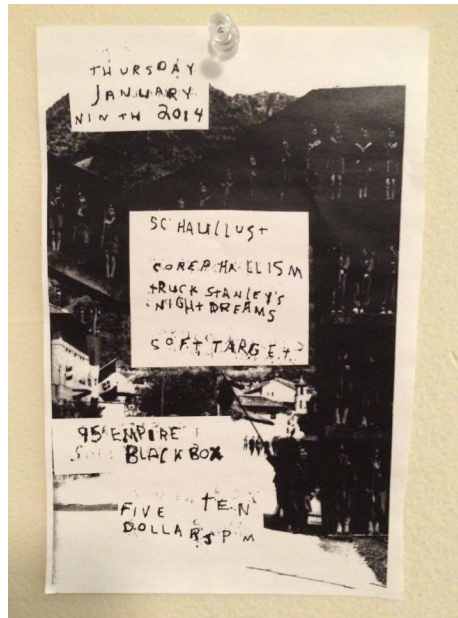 THURSDAY
JANUARY
NINTH 2014
SCHAULUST
COREPHALLISM
TRUCK STANLEY'S
NIGHT DREAMS
SOFT TARGET
95 EMPIRE
BLACK BOX
FIVE TEN
DOLLARS PM